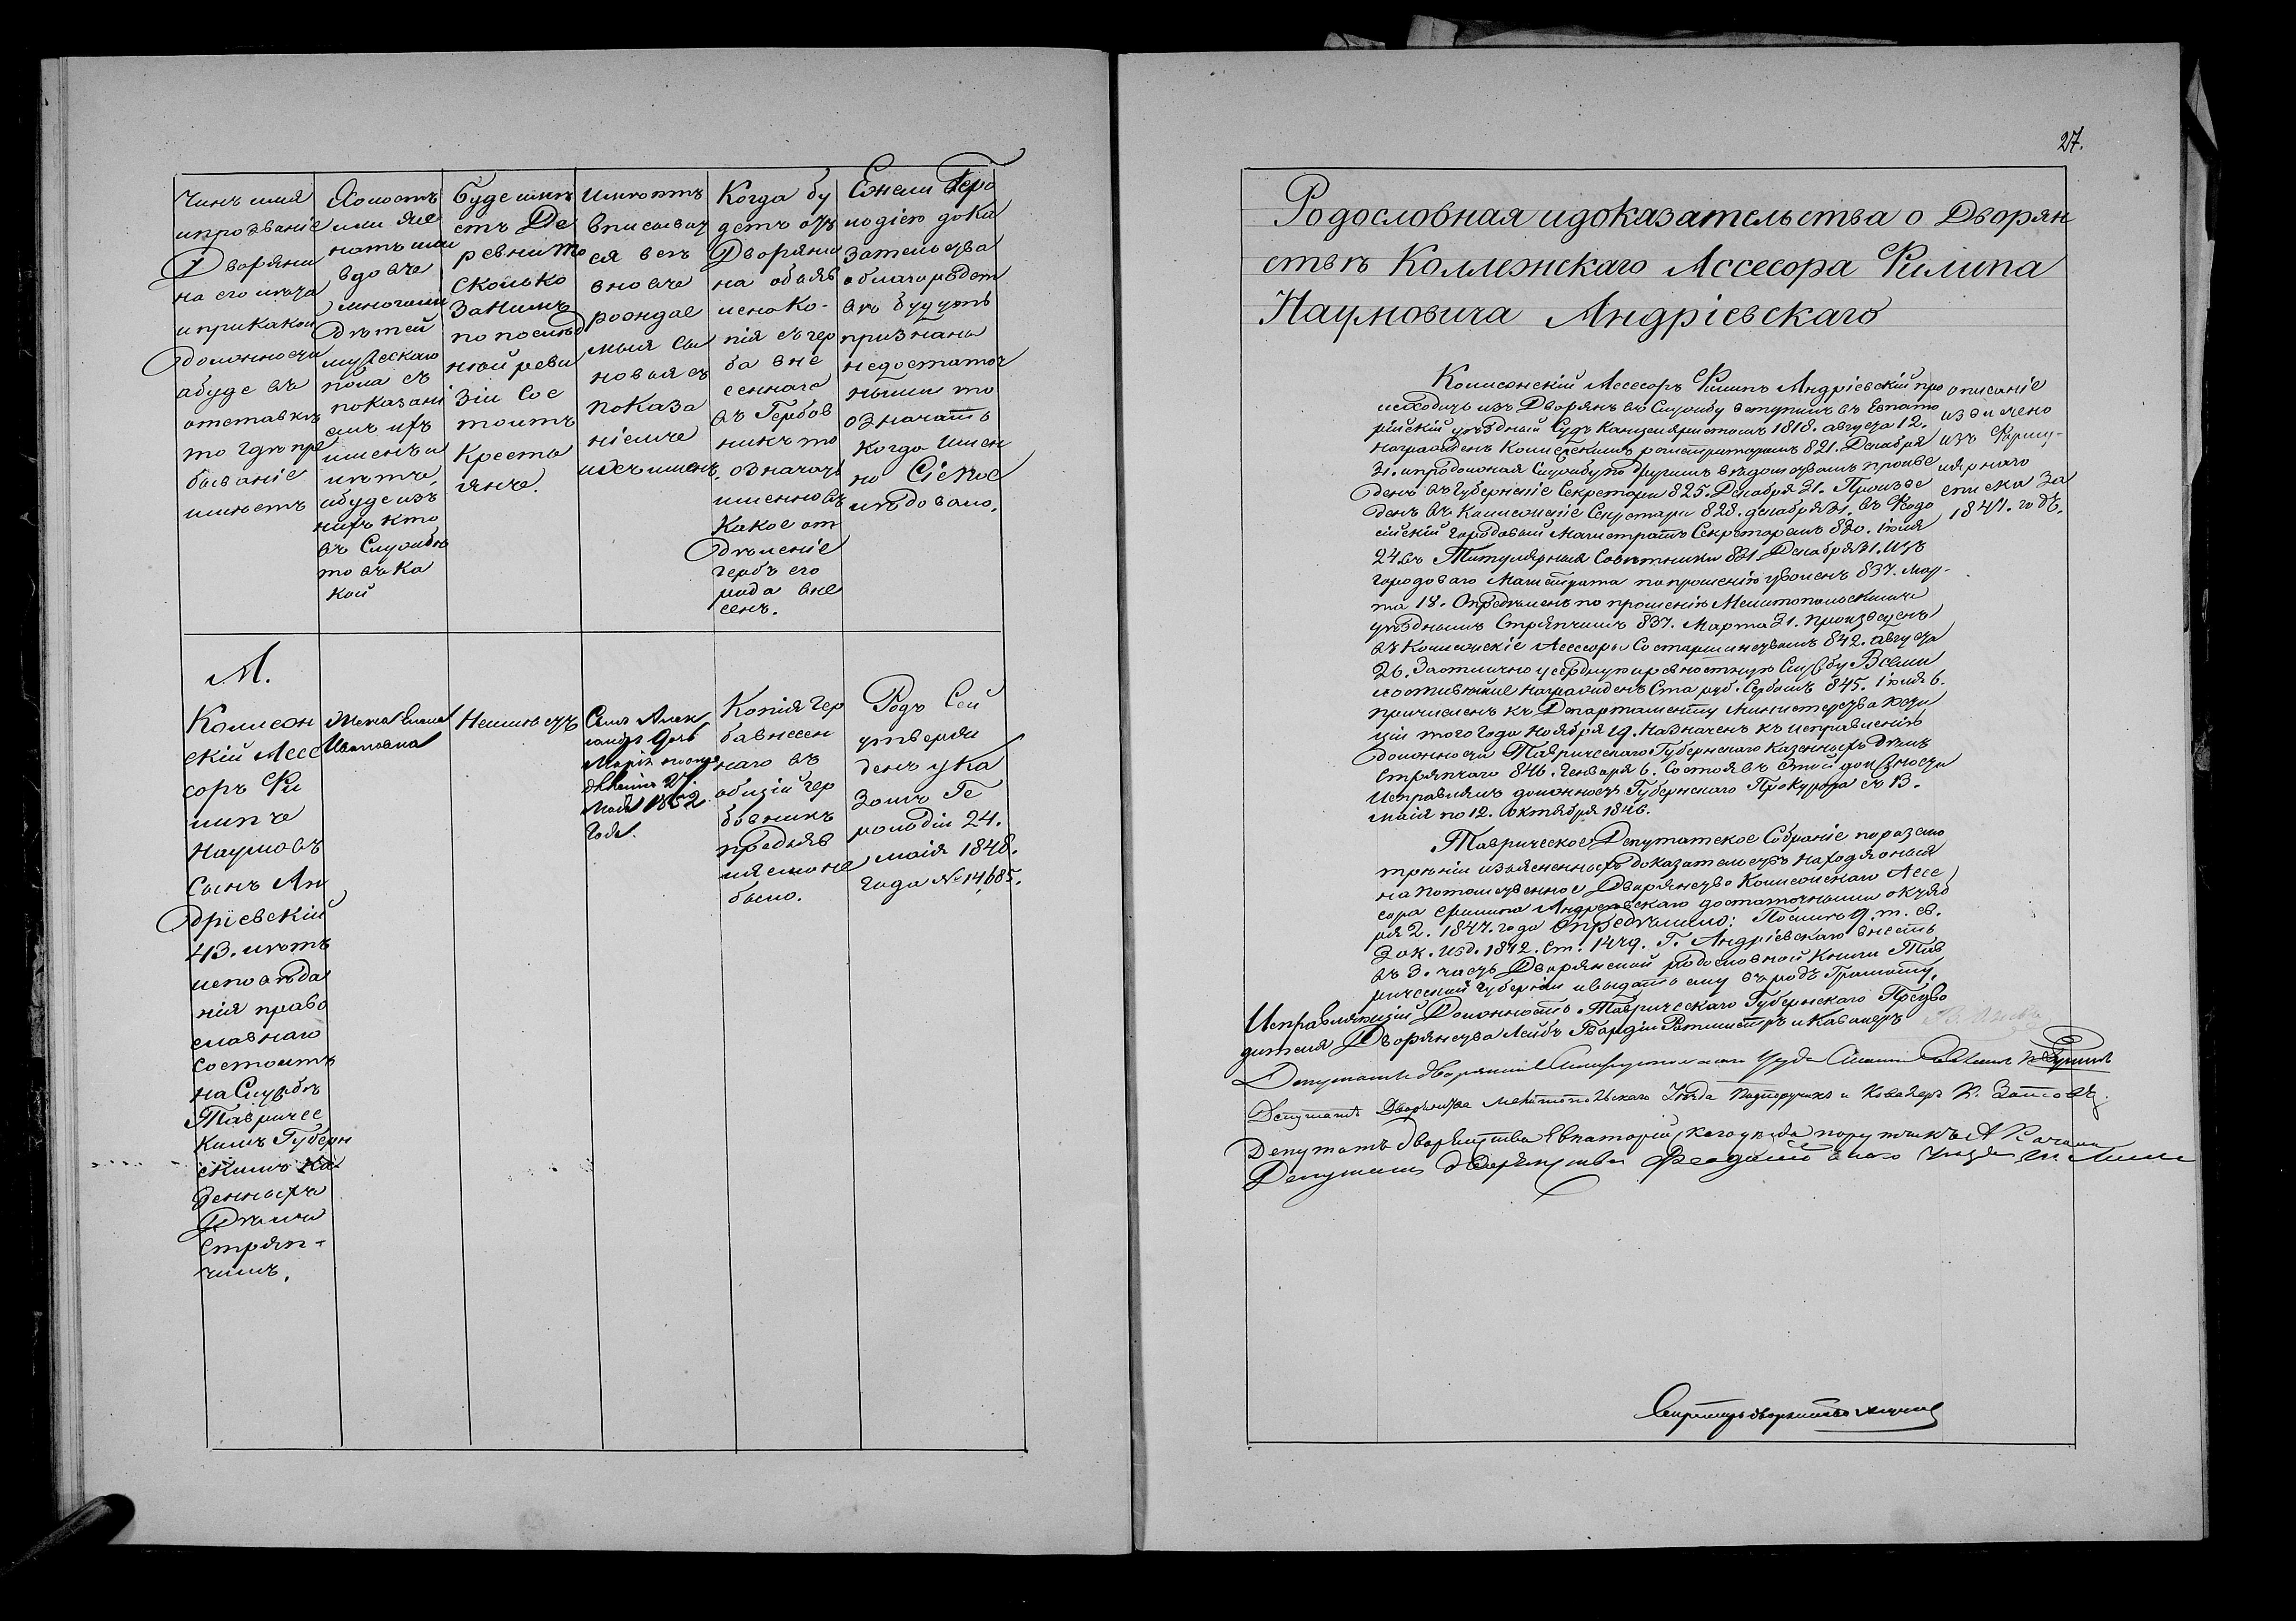 Чинъ имя
и прозваніе
Дворяни
на его лета
и при какои
должности
а буде въ
отставкѣ
то гдѣ пре
бываніе
имѣетъ
Холостъ
или же
натъ или
вдовъ
многоли
дѣтей
мужескаго
пола съ
показані
емъ ихъ
именъ и
лѣтъ,
и буде изъ
нихъ кто
въ Службѣ
то въ ка
кой
Буде имѣ
етъ Де
ревни то
сколько
за нимъ
по послѣд
ней реви
зіи Сос
тоитъ
Кресть
янъ.
Имѣютъ
вписыват
ся всѣ
вновь
рождае
мыя сы
новья съ
показа
ніемъ
ихъ именъ.
Когда бу
детъ отъ
Дворяни
на объяв
лена ко-
пія съ гер
ба вне
сеннаго
въ Гербов
никъ то
означать
именно въ
какое от
дѣленіе
гербъ его
рода вне
сенъ.
Ежели Геро
льдіею дока
зательства
о благородст
вѣ будутъ
признаны
недостаточ
ными то
означать
когда имен
но Сіе пос
лѣдовало.
М.
Колеж
скій Ассе
соръ Фи
липъ
Наумовъ
Сынъ Ан
дріевскій
43. лѣтъ
исповѣда
нія право
славнаго
состоитъ
на Службѣ
Тавричес
кимъ Губерн
скимъ Ка
зенныхъ
Дѣлъ
Стряп-
чимъ.
Жена Елена
Ивановна
Неимѣетъ
Сынъ Алек
сандръ Дочь
Марія
27.
Мая 1852
Года.
Копія гер
ба внесен
наго въ
общій гер
бовникъ
предъяв
ляемо не
было.
Родъ Сей
утверж
денъ ука
зомъ Ге
рольдіи 24.
маія 1848.
года № 14,685.
27.
Родословная и доказательства о Дворян
ствѣ Коллежскаго Ассесора Филипа
Наумовича Андріевскаго
Колежскій Ассесоръ Филипъ Андріевскій про
исходитъ изъ Дворянъ въ Службу вступилъ въ Евпато
рійскій уѣздный Судъ Канцеляристомъ 1818. августа 12.
награжденъ Колежскимъ регистраторомъ 821. Декабря
31. и продолжая Службу по другимъ вѣдомствамъ произве
денъ въ Губернскіе Секретари 825. Декабря 31. Произве
денъ въ Колежскіе Секретари 828. декабря 31. въ Феодо
сійскій Городовый Магистратъ Секретаремъ 830. іюля
24. въ Титулярныя Совѣтники 831. Декабря 31. изъ
городоваго Магистрата по прошенію уволенъ 837. Мар-
та 18. Опредѣленъ по прошенію Мелитопольскимъ
уѣзднымъ Стряпчимъ 837. Марта 31. произведенъ
въ Колежскіе Ассесоры Со старшинствомъ 842. августа
26. За отлично усердную и ревностную Службу Всеми
лостивѣйше награжденъ Ста руб. Сербромъ 845. Іюля 6.
причисленъ къ Департаменту Министерства Юсти
ціи того года Ноября 19. Назначенъ къ исправленію
должности Таврическаго Губернскаго Казенныхъ дѣлъ
Стряпчаго 846. Генваря 6. Состоя въ этой должности
Исправлялъ должность Губернскаго Прокурора съ 13.
маія по 12. октября 1846.
описаніе
извлечено
изъ Форму-
лярнаго
списка за
1847. годъ.
Таврическое Депутатское Собраніе по разсмо
трѣніи изъясненныхъ доказательствъ находя оныя
на Потомственное Дворянство Колежскаго Ассе
сора Филипа Андріевскаго достаточными октяб
ря 2. 1847. года опредѣлило: По силѣ 9. т. св.
Зак. изд. 1842. Ст. 1479. Г. Андріевскаго внесть
въ 3. часть Дворянской родословной Книги Тав
рической Губерніи и выдать ему въ родъ Грамоту.
Исправляющій Должность Таврическаго Губернскаго Предво
дителя Дворянства Лейбъ Гвардіи Ротмистръ и Кавалеръ
Депутатъ дворянства Симферопольскаго Уезда
Депутатъ Дворянства Мелитопольскаго Уѣзда Подпоручикъ и Кавалеръ
Депутатъ дворянства Евпаторійскаго уѣзда поручикъ А
Депутатъ дворянства Феодосійскаго уезда
Секретарь дворянства